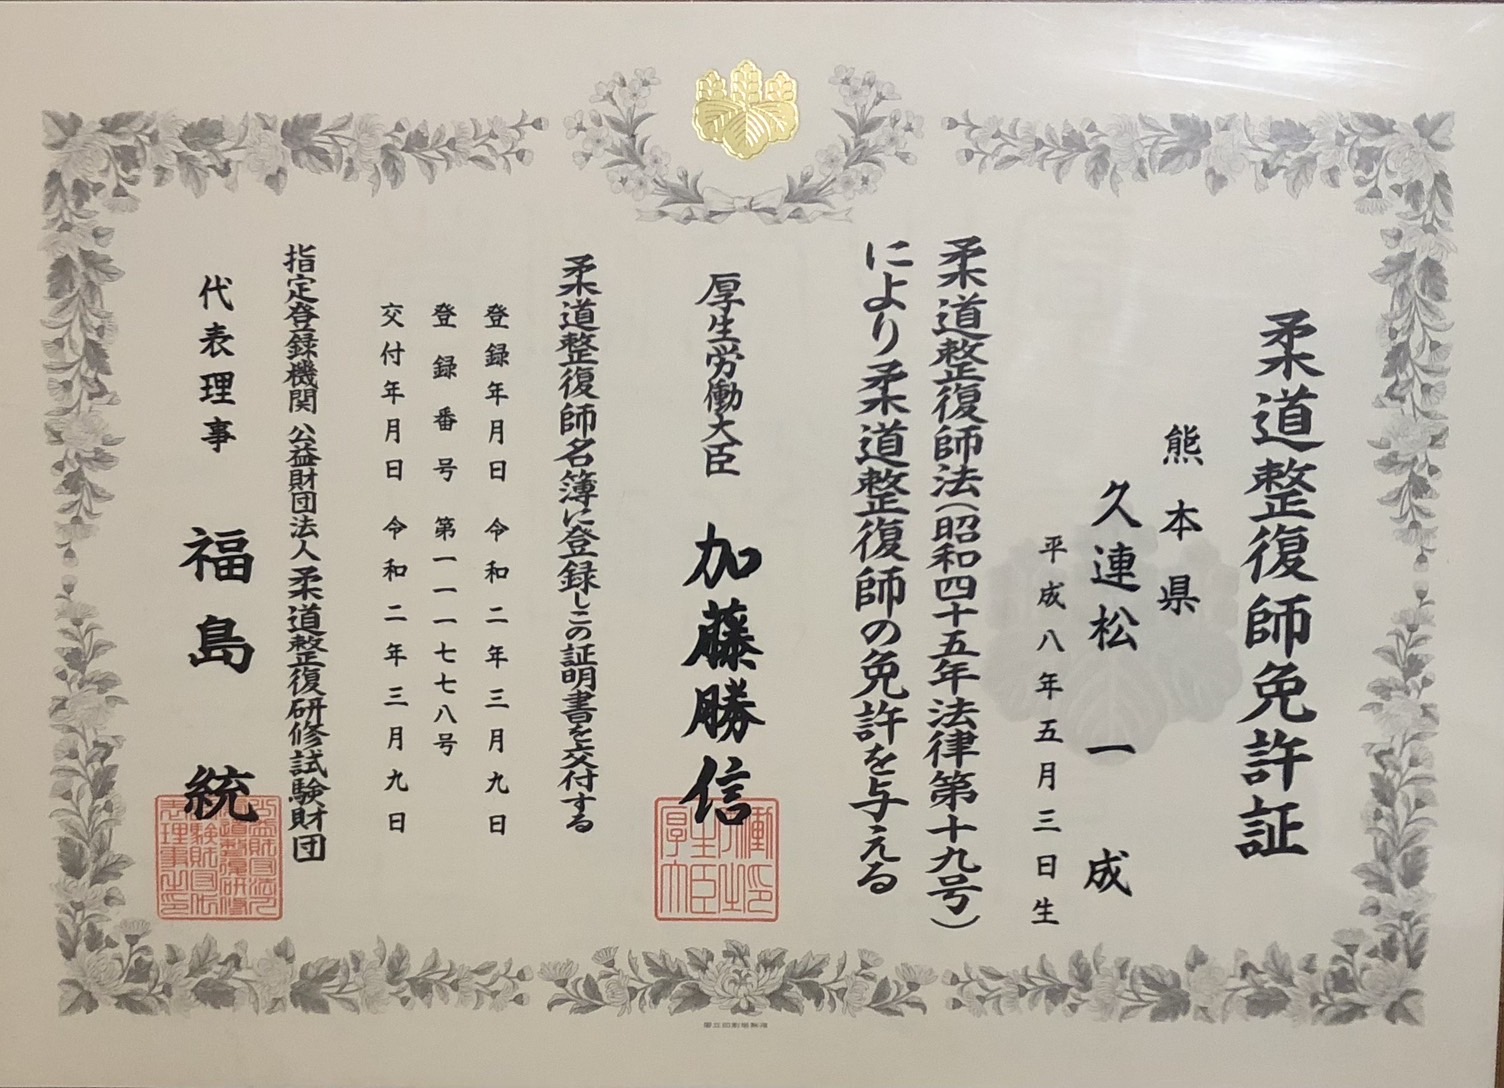 柔道整復師免許証
熊本県
久連松一成
平成八年五月三日生
柔道整復師法(昭和四十五年法律第十九号)
により柔道整復師の免許を与える
厚生労働大臣 加藤勝信
柔道整復師名簿に登録しこの証明書を交付する
登録年月日 令和二年三月九日
登録番号 第一一一七七八号
交付年月日 令和二年三月九日
指定登録機関 公益財団法人柔道整復研修試験財団
代表理事 福島統